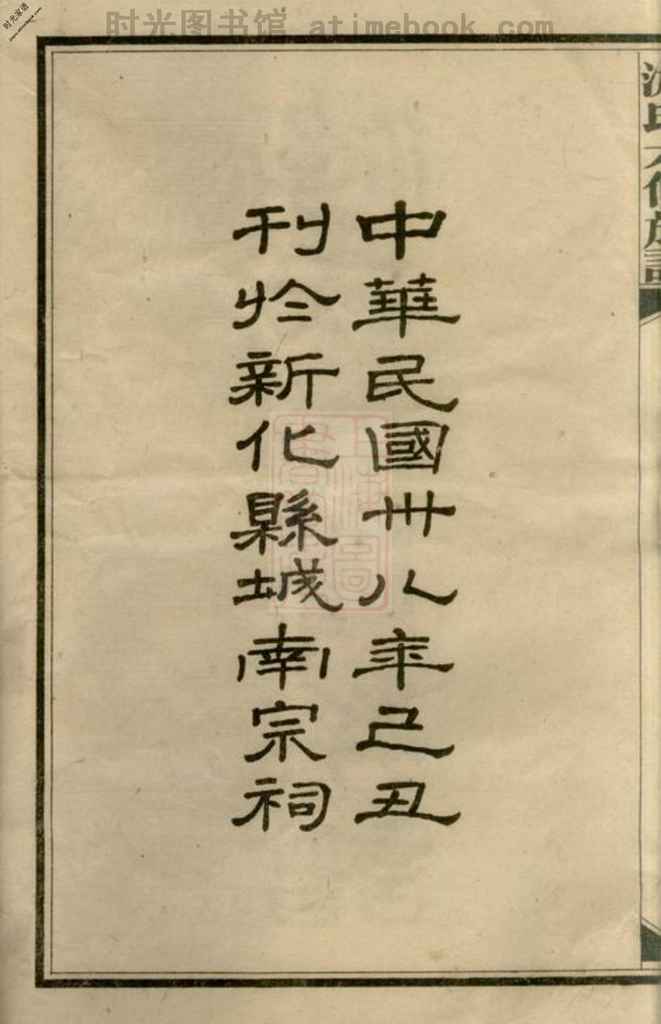 时光图书馆 atimebook.com
时光家谱
中華民國卅八年己丑
刊於新化縣城南宗祠
族譜